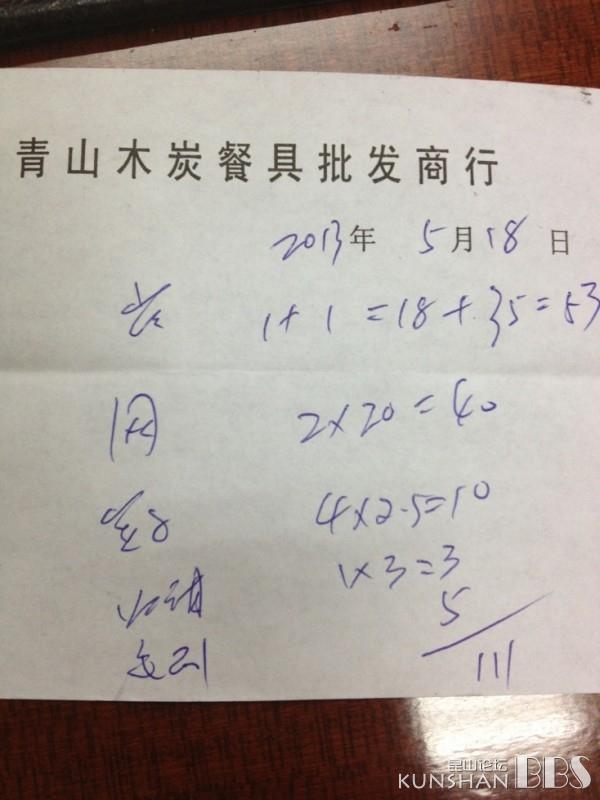 青山木炭餐具批发商行
2013年 5月18日
炭 1+1=18+35=53
网 2×20=40
4×2.5=10
1×3=3
5
111
昆山论坛
KUNSHAN BBS